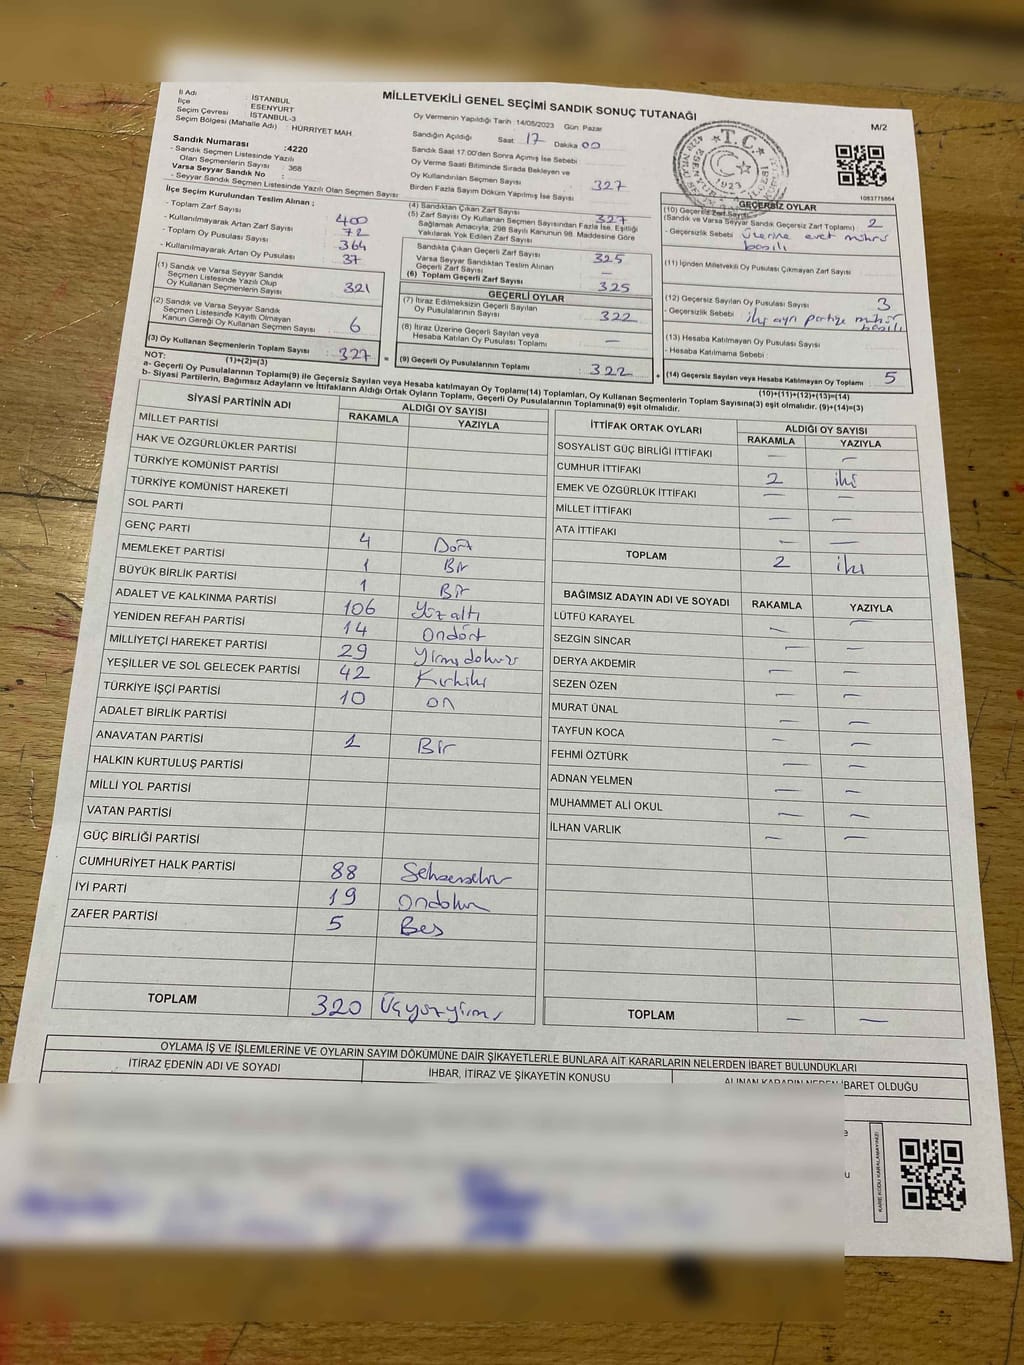 İl Adı : İSTANBUL
İlçe : ESENYURT
Seçim Çevresi : İSTANBUL-3
Seçim Bölgesi (Mahalle Adı) : HÜRRİYET MAH.
MİLLETVEKİLİ GENEL SEÇİMİ SANDIK SONUÇ TUTANAĞI
M/2
Oy Vermenin Yapıldığı Tarih :14/05/2023 Gün Pazar
Sandığın Açıldığı Saat: 17 Dakika 00
Sandık Saat 17:00'den Sonra Açımış İse Sebebi
Oy Verme Saati Bitiminde Sırada Bekleyen ve
Oy Kullandırılan Seçmen Sayısı 327
Birden Fazla Sayım Döküm Yapılmış İse Sayısı
T.C.
1923
1083775864
Sandık Numarası :4220
- Sandık Seçmen Listesinde Yazılı
Olan Seçmenlerin Sayısı : 368
Varsa Seyyar Sandık No :
- Seyyar Sandık Seçmen Listesinde Yazılı Olan Seçmen Sayısı
İlçe Seçim Kurulundan Teslim Alınan ;
- Toplam Zarf Sayısı 400
- Kullanılmayarak Artan Zarf Sayısı 72
- Toplam Oy Pusulası Sayısı 364
- Kullanılmayarak Artan Oy Pusulası 37
(1) Sandık ve Varsa Seyyar Sandık
Seçmen Listesinde Yazılı Olup
Oy Kullanan Seçmenlerin Sayısı 321
(2) Sandık ve Varsa Seyyar Sandık
Seçmen Listesinde Kayıtlı Olmayan
Kanun Gereği Oy Kullanan Seçmen Sayısı 6
(3) Oy Kullanan Seçmenlerin Toplam Sayısı 327
(1)+(2)=(3)
(4) Sandıktan Çıkan Zarf Sayısı 327
(5) Zarf Sayısı Oy Kullanan Seçmen Sayısından Fazla İse, Eşitliği
Sağlamak Amacıyla, 298 Sayılı Kanunun 98. Maddesine Göre
Yakılarak Yok Edilen Zarf Sayısı
Sandıkta Çıkan Geçerli Zarf Sayısı 325
Varsa Seyyar Sandıktan Teslim Alınan
Geçerli Zarf Sayısı —
(6) Toplam Geçerli Zarf Sayısı 325
GEÇERLİ OYLAR
(7) İtiraz Edilmeksizin Geçerli Sayılan
Oy Pusulalarının Sayısı 322
(8) İtiraz Üzerine Geçerli Sayılan veya
Hesaba Katılan Oy Pusulaları Toplamı —
= (9) Geçerli Oy Pusulalarının Toplamı 322
GEÇERSİZ OYLAR
(10) Geçersiz Zarf Sayısı
(Sandık ve Varsa Seyyar Sandık Geçersiz Zarf Toplamı) 2
- Geçersizlik Sebebi üzerine evet mührü
basılı
(11) İçinden Milletvekili Oy Pusulası Çıkmayan Zarf Sayısı
(12) Geçersiz Sayılan Oy Pusulası Sayısı 3
- Geçersizlik Sebebi iki ayrı partiye mühür
basılı
(13) Hesaba Katılmayan Oy Pusulası Sayısı
- Hesaba Katılmama Sebebi
+ (14) Geçersiz Sayılan veya Hesaba Katılmayan Oy Toplamı 5
(10)+(11)+(12)+(13)=(14)
NOT:
a- Geçerli Oy Pusulalarının Toplamı(9) ile Geçersiz Sayılan veya Hesaba katılmayan Oy Toplamı(14) Toplamları, Oy Kullanan Seçmenlerin Toplam Sayısına(3) eşit olmalıdır. (9)+(14)=(3)
b- Siyasi Partilerin, Bağımsız Adayların ve İttifakların Aldığı Ortak Oyların Toplamı, Geçerli Oy Pusulalarının Toplamına(9) eşit olmalıdır.
SİYASİ PARTİNİN ADI ALDIĞI OY SAYISI
RAKAMLA YAZIYLA
MİLLET PARTİSİ
HAK VE ÖZGÜRLÜKLER PARTİSİ
TÜRKİYE KOMÜNİST PARTİSİ
TÜRKİYE KOMÜNİST HAREKETİ
SOL PARTİ
GENÇ PARTİ 4 Dört
MEMLEKET PARTİSİ 1 Bir
BÜYÜK BİRLİK PARTİSİ 1 Bir
ADALET VE KALKINMA PARTİSİ 106 Yüzaltı
YENİDEN REFAH PARTİSİ 14 Ondört
MİLLİYETÇİ HAREKET PARTİSİ 29 Yirmidokuz
YEŞİLLER VE SOL GELECEK PARTİSİ 42 Kırkiki
TÜRKİYE İŞÇİ PARTİSİ 10 on
ADALET BİRLİK PARTİSİ
ANAVATAN PARTİSİ 1 Bir
HALKIN KURTULUŞ PARTİSİ
MİLLİ YOL PARTİSİ
VATAN PARTİSİ
GÜÇ BİRLİĞİ PARTİSİ
CUMHURİYET HALK PARTİSİ 88 Seksensekiz
İYİ PARTİ 19 Ondokuz
ZAFER PARTİSİ 5 Beş
TOPLAM 320 Üçyüzyirmi
İTTİFAK ORTAK OYLARI ALDIĞI OY SAYISI
RAKAMLA YAZIYLA
SOSYALİST GÜÇ BİRLİĞİ İTTİFAKI — —
CUMHUR İTTİFAKI 2 iki
EMEK VE ÖZGÜRLÜK İTTİFAKI — —
MİLLET İTTİFAKI — —
ATA İTTİFAKI — —
TOPLAM 2 iki
BAĞIMSIZ ADAYIN ADI VE SOYADI RAKAMLA YAZIYLA
LÜTFÜ KARAYEL — —
SEZGİN SİNCAR — —
DERYA AKDEMİR — —
SEZEN ÖZEN — —
MURAT ÜNAL — —
TAYFUN KOCA — —
FEHMİ ÖZTÜRK — —
ADNAN YELMEN — —
MUHAMMET ALİ OKUL — —
İLHAN VARLIK — —
TOPLAM — —
OYLAMA İŞ VE İŞLEMLERİNE VE OYLARIN SAYIM DÖKÜMÜNE DAİR ŞİKAYETLERLE BUNLARA AİT KARARLARIN NELERDEN İBARET BULUNDUKLARI
İTİRAZ EDENİN ADI VE SOYADI İHBAR, İTİRAZ VE ŞİKAYETİN KONUSU ALINAN KARARIN NEDEN İBARET OLDUĞU
KARE KODU KARALAMAYINIZ!